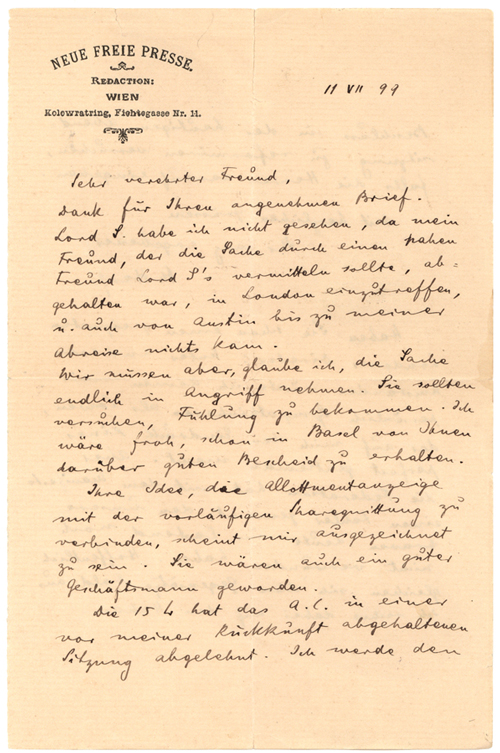 NEUE FREIE PRESSE.
REDACTION:
WIEN
Kolowratring, Fichtegasse Nr. 11.
11 VII 99
Sehr verehrter Freund,
Dank für Ihren angenehmen Brief.
Lord S. habe ich nicht gesehen, da mein
Freund, der die Sache durch einen nahen
Freund Lord S's vermitteln sollte, ab=
gehalten war, in London einzutreffen,
u. auch von Austin bis zu meiner
Abreise nichts kam.
Wir müssen aber, glaube ich, die Sache
endlich in Angriff nehmen. Sie sollten
versuchen, Fühlung zu bekommen. Ich
wäre froh, schon in Basel von Ihnen
darüber guten Bescheid zu erhalten.
Ihre Idee, die Allottmentanzeige
mit der vorläufigen Sharequittung zu
verbinden, scheint mir ausgezeichnet
zu sein. Sie wären auch ein guter
Geschäftsmann geworden.
Die 15 hat das A.C. in einer
vor meiner Rückkunft abgehaltenen
Sitzung abgelehnt. Ich werde den